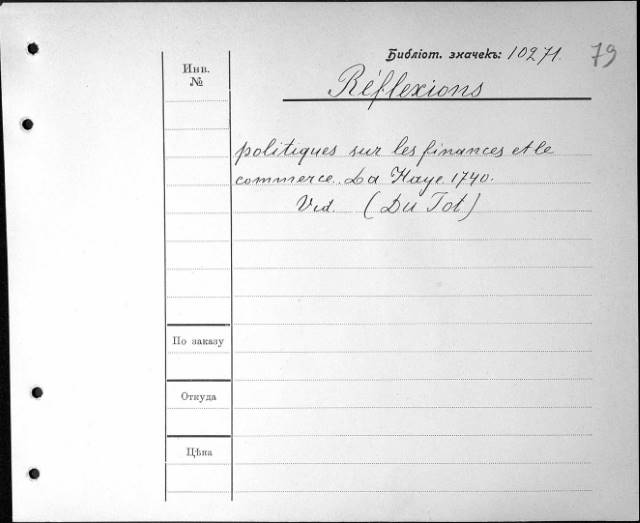 Библіот. значекъ: 10271.
79
Инв.
№
Réflexions
politiques sur les finances et le
commerce. La Haye 1740.
Vid. (Du Tot)
По заказу
Откуда
Цѣна